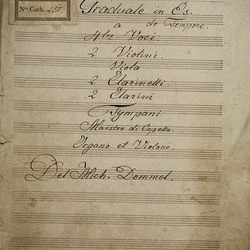 Graduale in Es.
No. Cath. 57.
a de Tempore.
4tro Voci
2 Violini.
Viola
2 Clarinetti.
2 Clarini
Tympani
Maestro di Capella.
Organo et Violone.
Del Mich. Demmel.